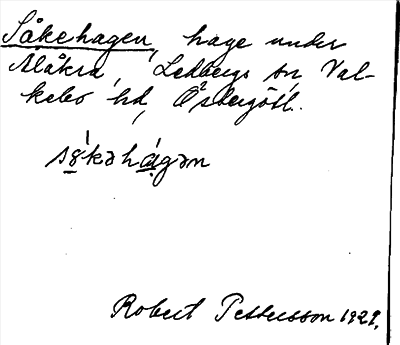 Såkehagen, hage under
Målåkra, Ledbergs sn, Val-
kebo hd, Östergötl.
s8̱́kəhá̱gən
Robert Pettersson 1929.